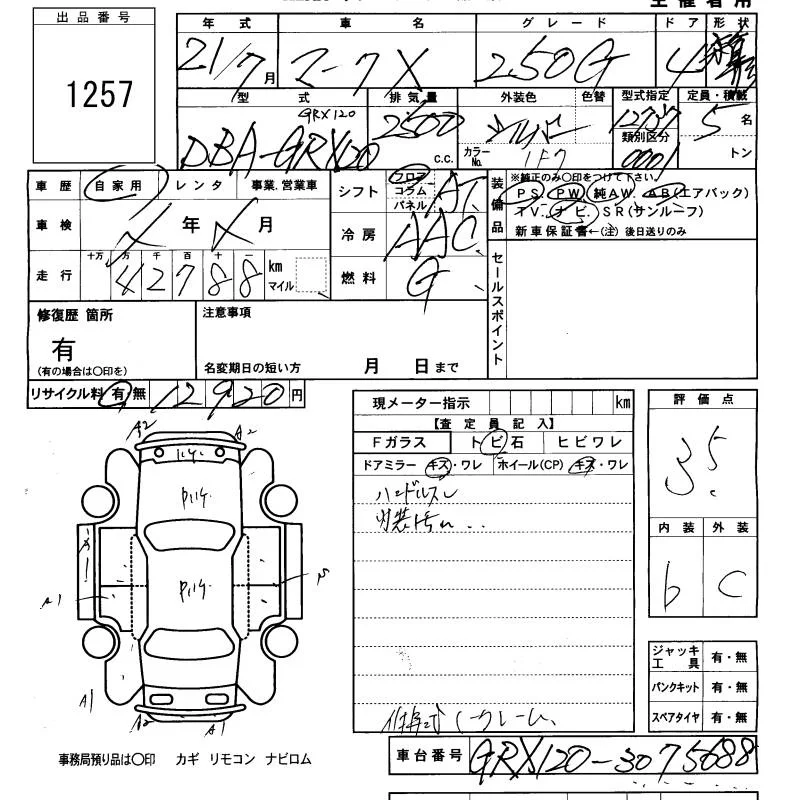 出品番号
1257
年式 車名 グレード ドア 形状
21/7月 マークX 250G 4
型式 排気量 外装色 色替 型式指定 定員・積載
GRX120
DBA-GRX120 2500 c.c. シルバー カラーNo. 1F7 類別区分 0001 5名
トン
車歴 自家用 レンタ 事業.営業車
シフト フロア コラム パネル AT
装備品 ※純正のみ〇印をつけて下さい。
PS. PW (純AW. AB(エアバック)
TV. ナビ. SR(サンルーフ)
新車保証書←(注) 後日送りのみ
車検 年 月
冷房 AAC
走行 十万 万 千 百 十 一
42788 km マイル
燃料 G
セールスポイント
修復歴 箇所
有
(有の場合は〇印を)
注意事項
名変期日の短い方 月 日まで
リサイクル料 有 無 12920円
現メーター指示 km
【査定員記入】
Fガラス トビ石 ヒビワレ
ドアミラー キズ・ワレ ホイール(CP) キズ・ワレ
ハンドルスレ
内装汚れ..
評価点
3.5
内装 外装
b C
A2 A2
A1
A1
A2 A1
ジャッキ工具 有・無
パンクキット 有・無
スペアタイヤ 有・無
事務局預り品は〇印 カギ リモコン ナビロム
車台番号 GRX120-3075688